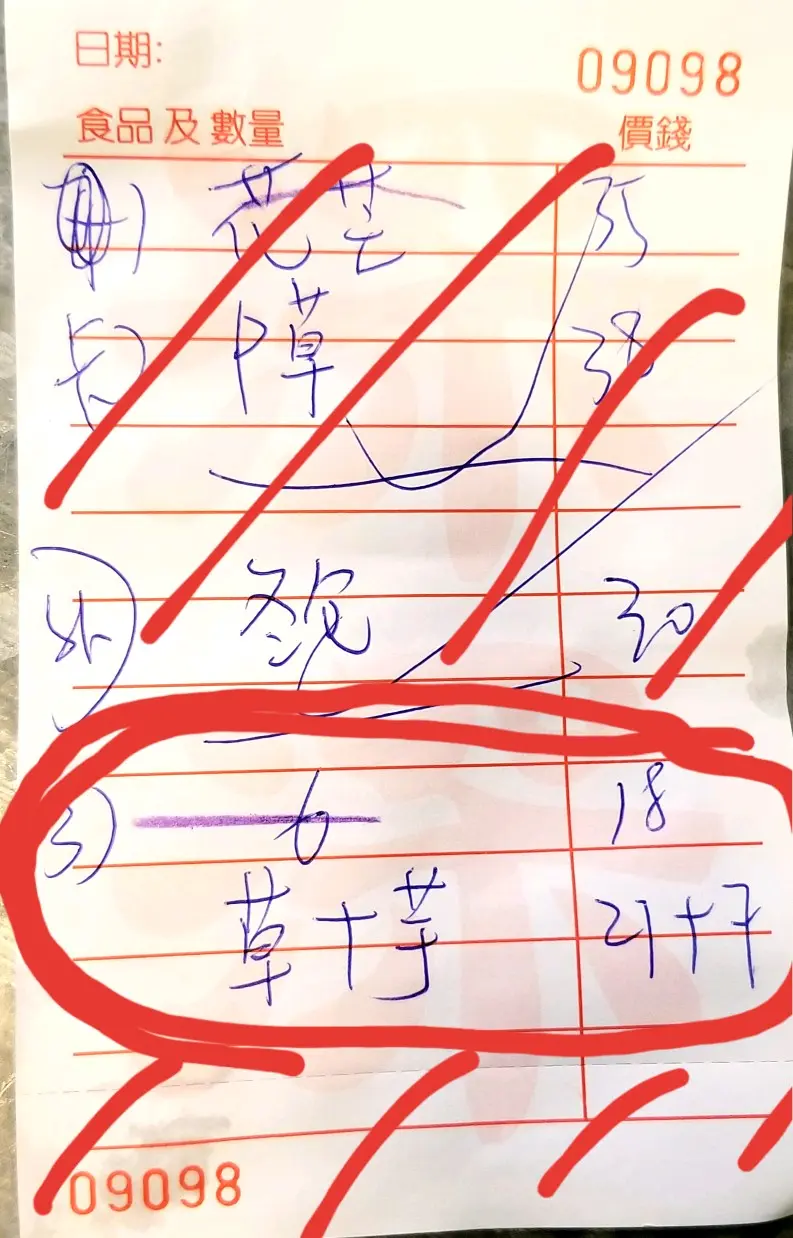 日期: 09098
食品及數量 價錢
花生 35
卩草 38
外) 30
3) 6 18
草十芋 21+7
09098